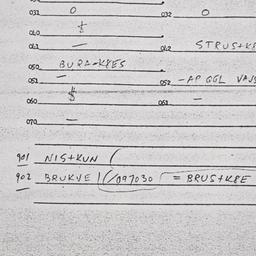 031 0 032 0
040 5
041 — 042 STRUS+KR
050 BURA-KRES
051 — 052 -AP GGL VAJS
060 5
061 —
070 —
901 NIS+KUN (
902 BRUKVE 1(/097030 = BRUS+KRE